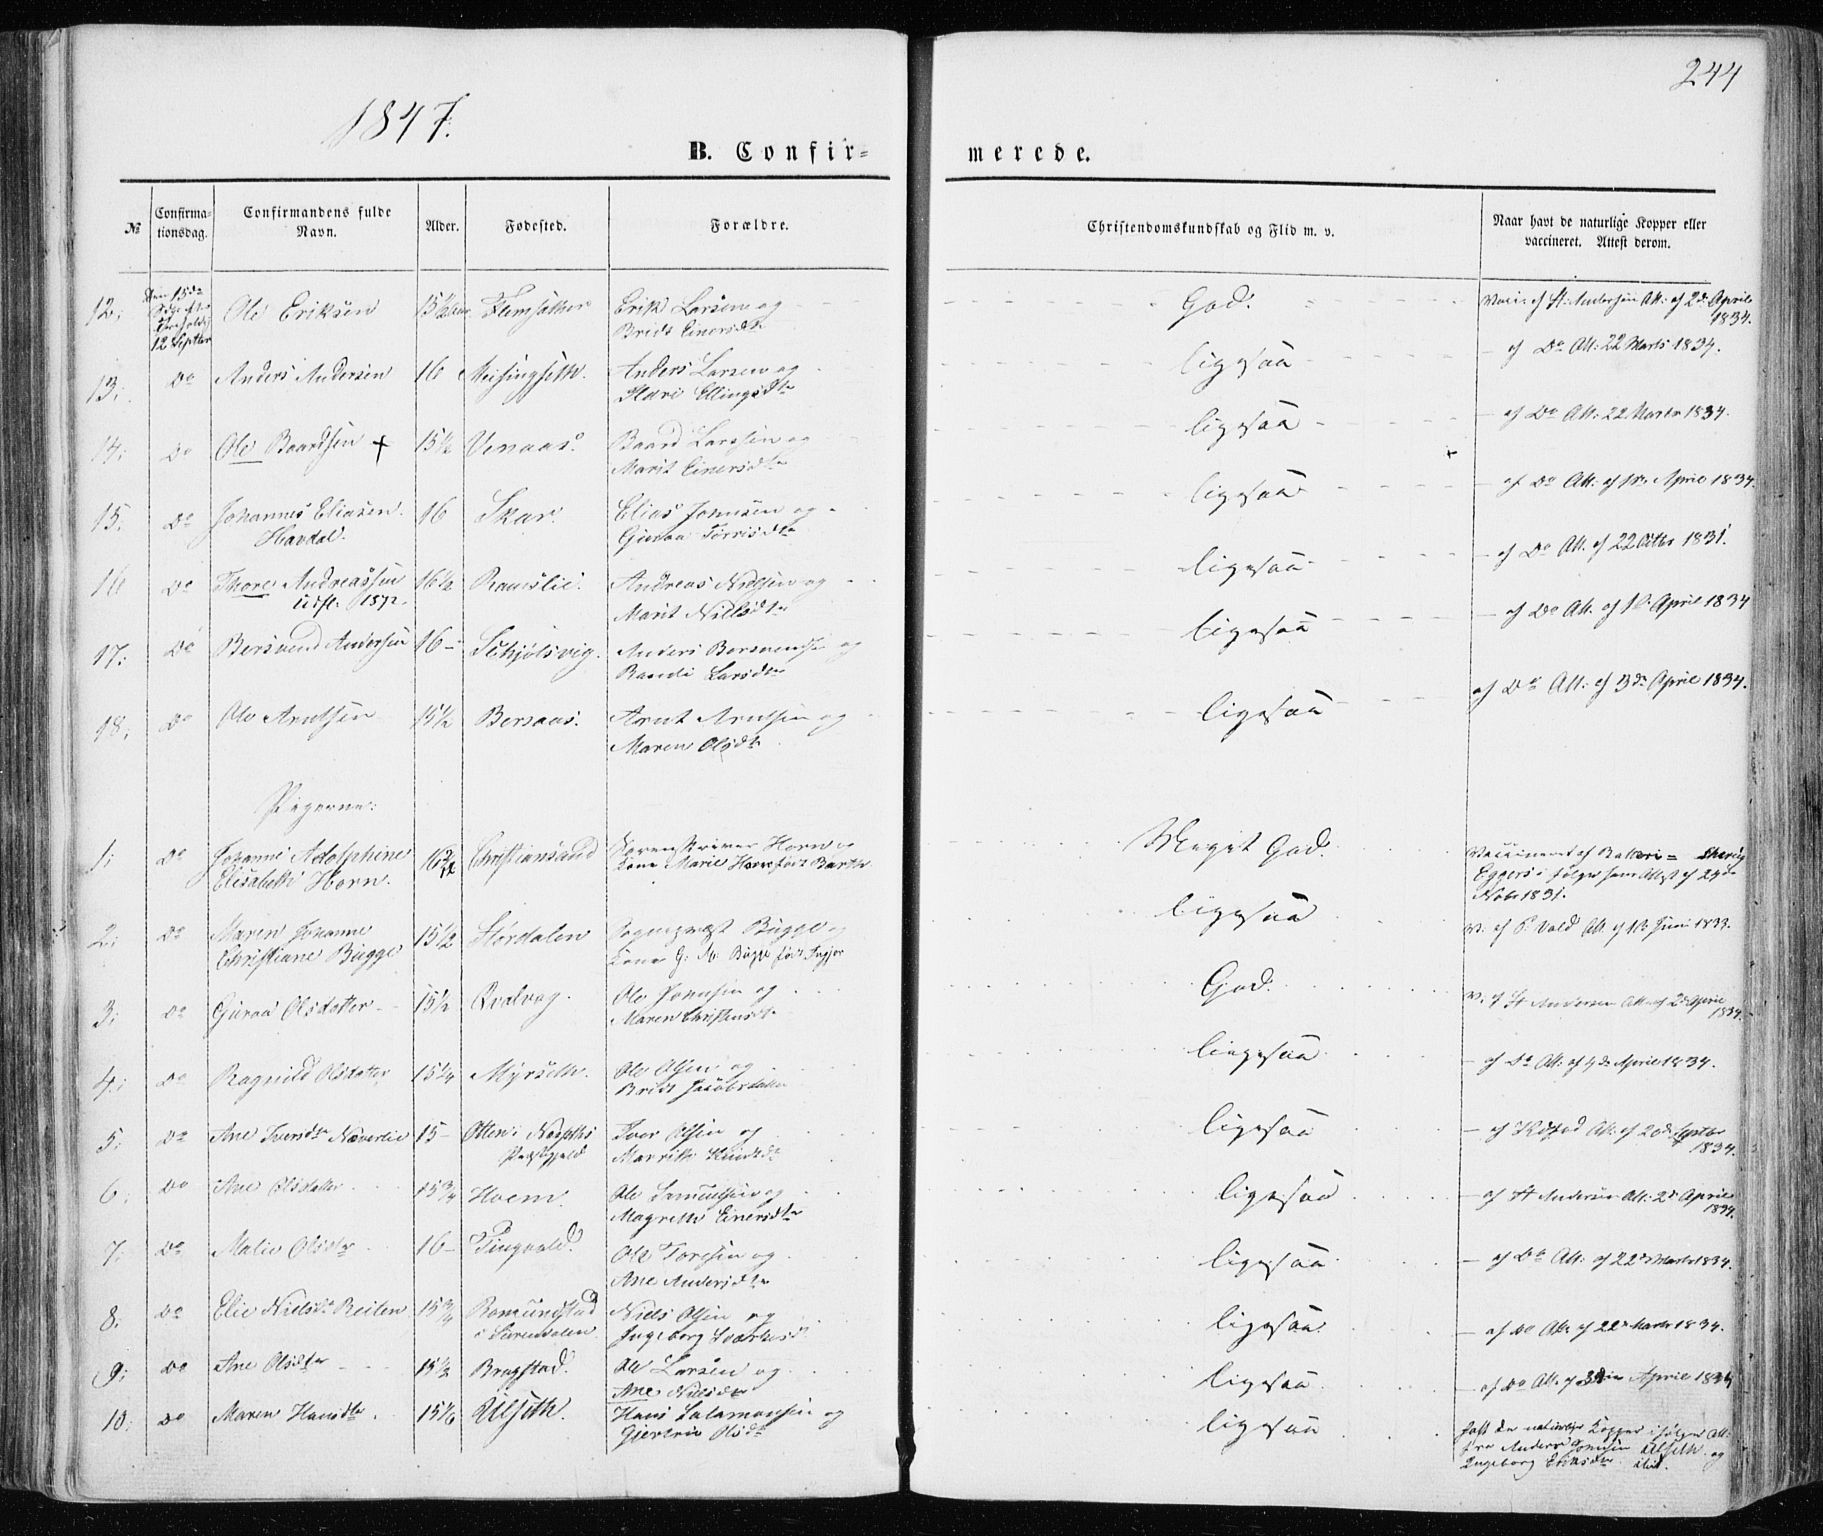 244
1847.
B. Confir-
merede.
№
Confirma-
tionsdag.
Confirmandens fulde
Navn.
Alder.
Fødested.
Forældre.
Christendomskundskab og Flid m. v.
Naar havt de naturlige Kopper eller
vaccineret. Attest derom.
12.
12 Septbr
Ole Eriksen
15 1/2
Erik Larsen og
Bridt Einersdtr
God.
Vacc. af St. Andersen Att. af 2den April
1834.
13.
Do
Anders Andersen
16
Meisingseth.
Anders Larsen og
Mari Ellingsdtr
ligesaa
- af Do Att. 22 Marts 1834.
14.
Do
Ole Baardsen +
15 1/2
Venaas.
Baard Larssen og
Marit Einersdtr
ligesaa
+
- af Do Att. 22 Marts 1834.
15.
Do
Johannes Eliasen
Havdal.
16
Skar.
Elias Jonnsen og
Guroe Torrisdtr
ligesaa
- af Do Att. af April 1834.
16
Do
Thore Andreassen
udfl. 1872.
16 1/2
Ramslie.
Andreas Nielsen og
Marit Nielsdtr
ligesaa
- af Do Att. af 22 Octbr 1831.
17.
Do
Bersvend Andersen
16 -
Schjølsvig.
Anders Bersvendsen og
Randi Larsdtr
ligesaa
- af Do Att. af April 1834
18.
Do
Ole Arntsen
15 1/2
Bersaas.
Arnt Arntsen og
Maren Olsdtr
ligesaa
af Do Att. af 3de April 1834.
Pigerne:
1.
Do
Johanne Adolphine
Elisabeth Horn.
Christiansand
Sorenskriver Horn og
Kone Marie Horn født Barth
Meget God.
Vaccineret af
Eggers i følge Attest af
Novbr 1831.
2.
Do
Maren Johanne
Christiane Bugge
15 1/2
Størdalen
Sogneprest Bugge og
Kone G. M. Bugge født
ligesaa
V. af P. Vold Att. af Juni 1833.
3.
Do
Guroe Olsdatter
15 1/2
Qvalvog.
Ole Jonnsen og
Maren Christensdtr
God.
V. af St Andersen Att. af 2de April
1834.
4.
Do
Ragnild Olsdatter
15 1/4
Myrseth.
Ole Olsen og
Bridt Jacobsdatter
ligesaa
- af Do Att. af 4de April 1834.
5.
Do
Ane Iversdtr Næverlie
15 -
Otten i Næssets
Præstegjeld
Iver Olsen og
Marrith Knudsdtr
ligesaa
- af Att. af 20de Septbr
1834.
6.
Do
Ane Olsdatter
15 3/4
Hoem.
Ole Samuelsen og
Magrethe Einersdtr
ligesaa
- af St Andersen Att. 2de April
1834.
7.
Do
Malie Olsdtr
16 -
Tingvold.
Ole Toresen og
Ane Andersdtr
ligesaa
- af Do Att. af 22de Marts 1834.
8.
Do
Elie Nielsdtr Reiten
15 3/4
Romundstad
i Surendalen
Niels Olsen og
Ingeborg
ligesaa
- af Do Att. af 22de Marts 1834.
9.
Do
Ane Olsdtr
15 1/2
Brugstad.
Ole Larsen og
Ane Nielsdtr
ligesaa
- af Do Att. af April 1834
10.
Do
Maren Hansdtr.
Ulseth.
Hans Salamonsen og
Gjertrue Olsdtr
ligesaa
haft de naturlige Kopper i følge Att.
fra Anders Jonnsen Ulseth og
Ingeborg Eriksdtr ibid.